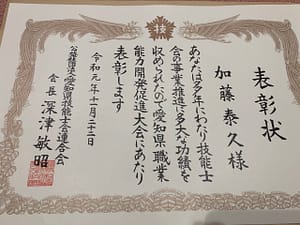 技
表彰状
加藤泰久様
あなたは多年にわたり技能士
会の事業推進に多大な功績を
収められたので愛知県職業
能力開発促進大会にあたり
表彰します
令和元年十一月二十三日
公益社団法人愛知県技能士会連合会
会長深津敏昭